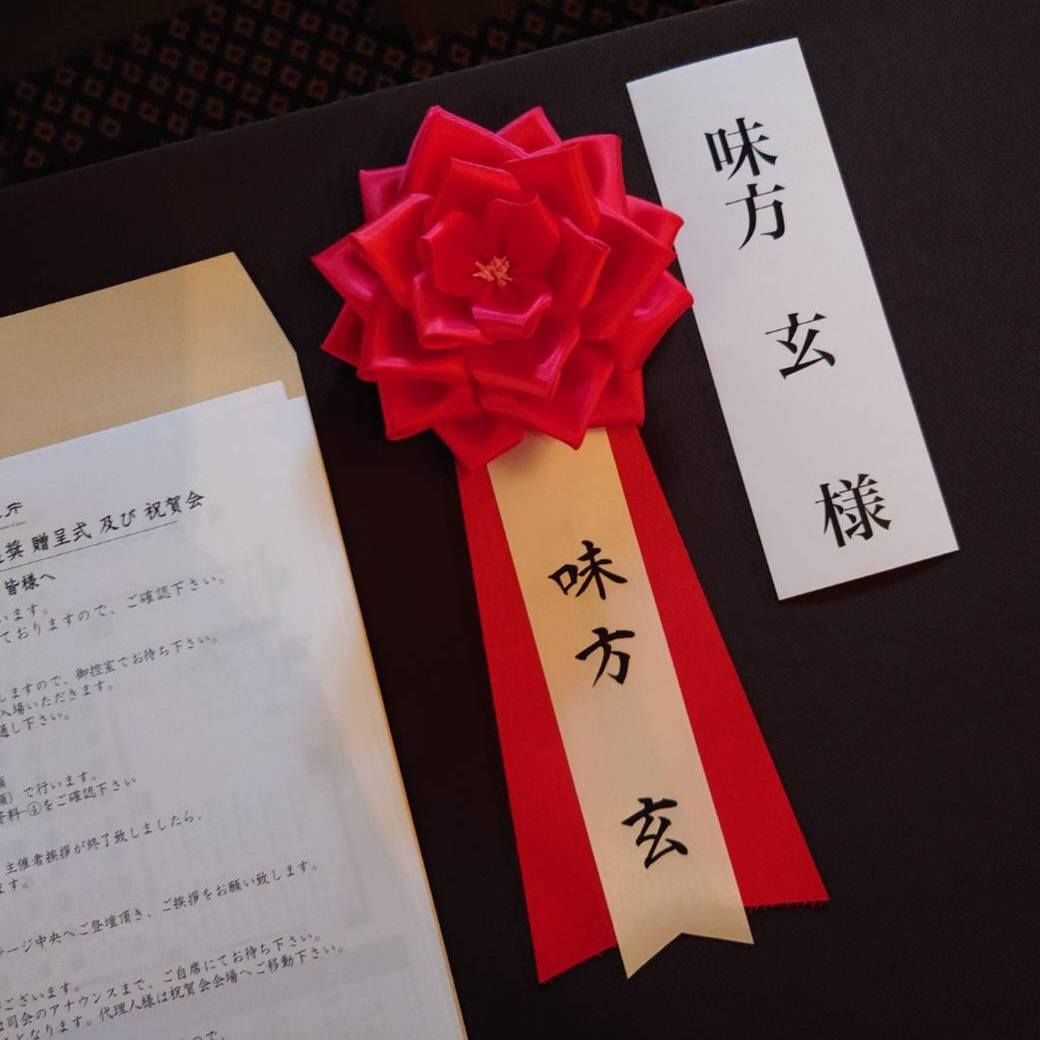 味方 玄 様
味方 玄
奨 贈呈式 及び 祝賀会
皆様へ
います。
ておりますので、ご確認下さい。
しますので、御控室でお待ち下さい。
入場いただきます。
通し下さい。
で行います。
資料-④をご確認下さい
主催者挨拶が終了致しましたら、
ます。
テージ中央へご登壇頂き、ご挨拶をお願い致します。
ございます。
司会のアナウンスまで、ご自席にてお待ち下さい。
となります。代理人様は祝賀会会場へご移動下さい。
ので、